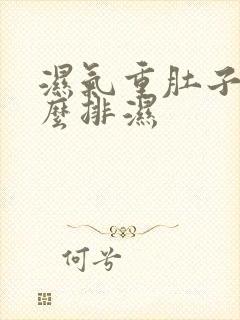 濕氣重肚子
麼排濕
何兮